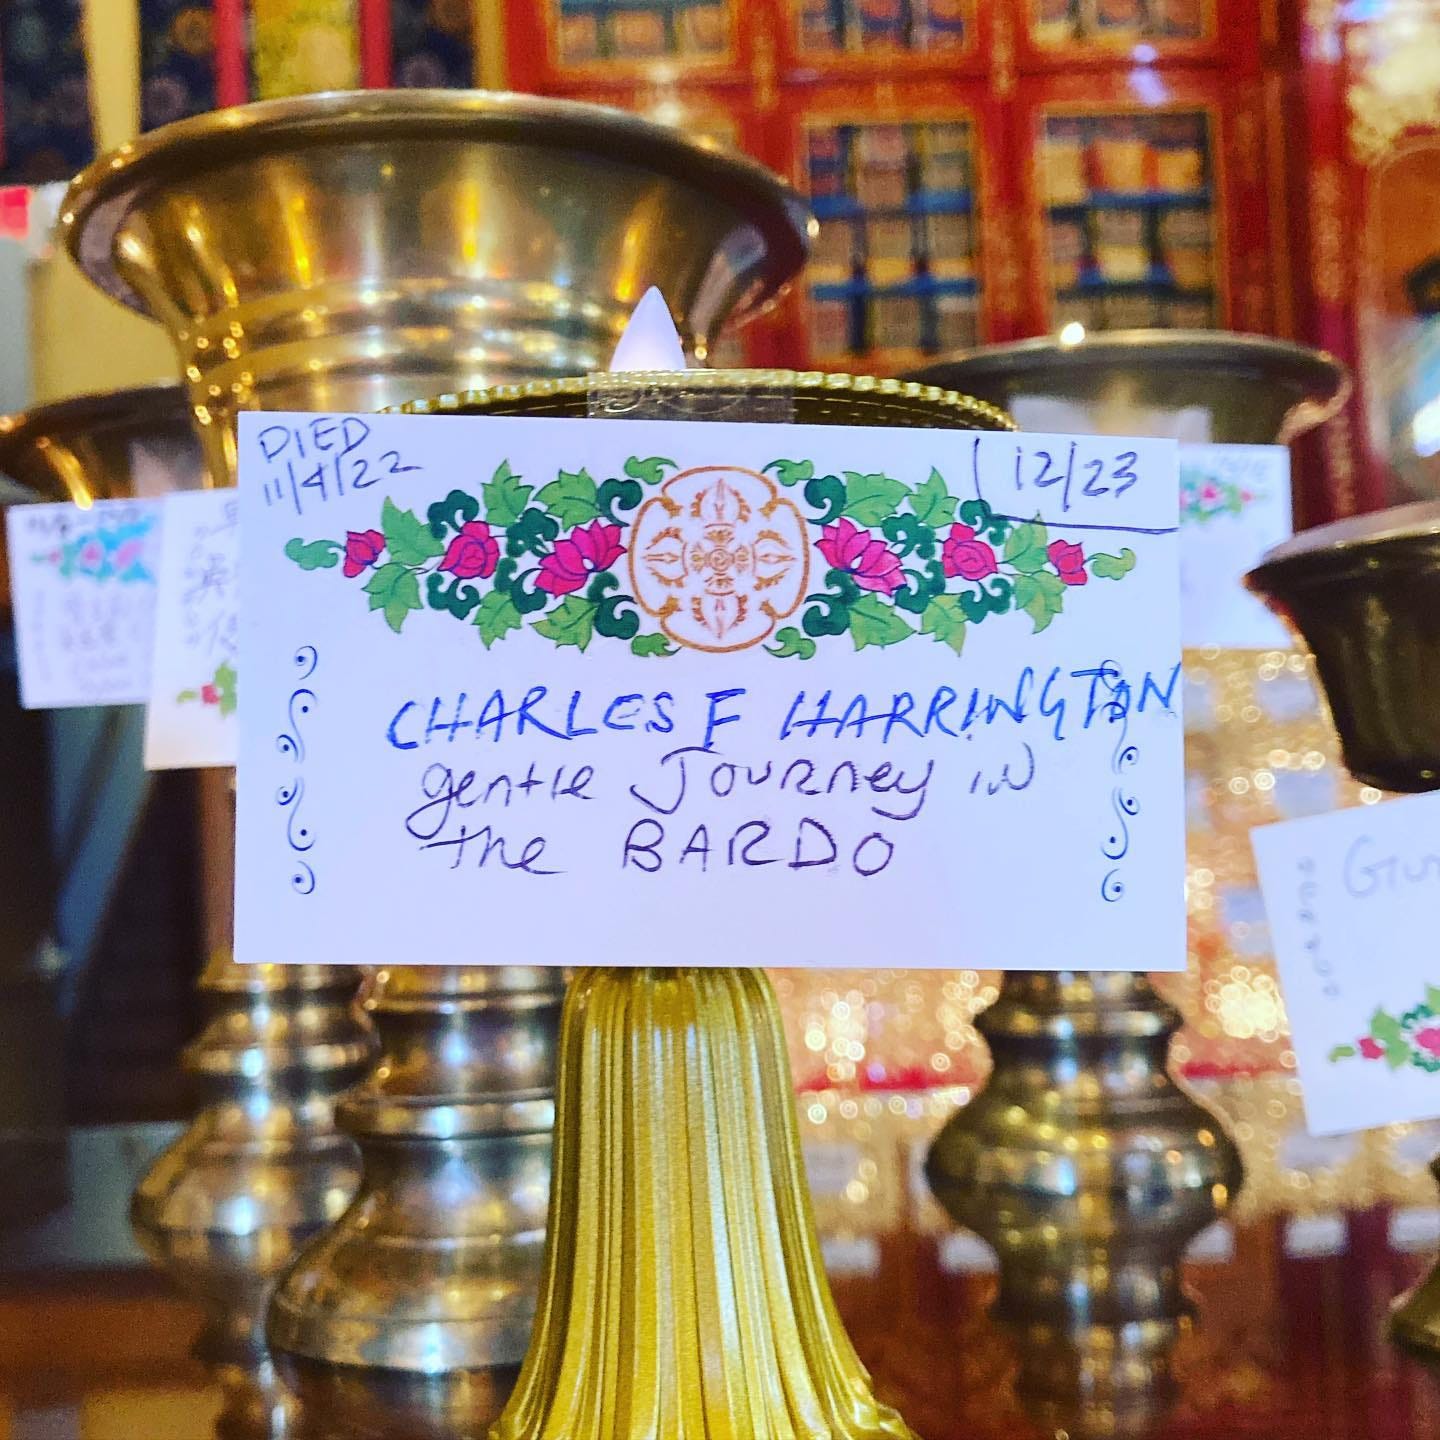 DIED
11/4/22
12/23
CHARLES F HARRINGTON
gentle Journey in
the BARDO